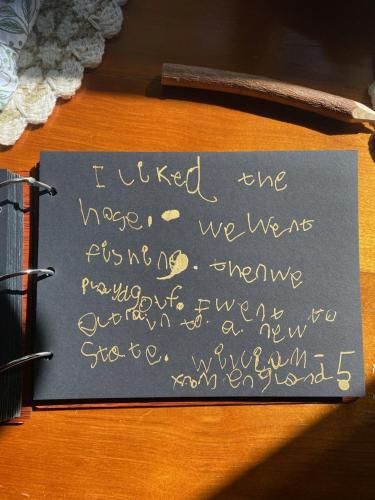 I liked the
hose. we went
fishing. then we
play golf. I went to
a new
State. William -
from england 5